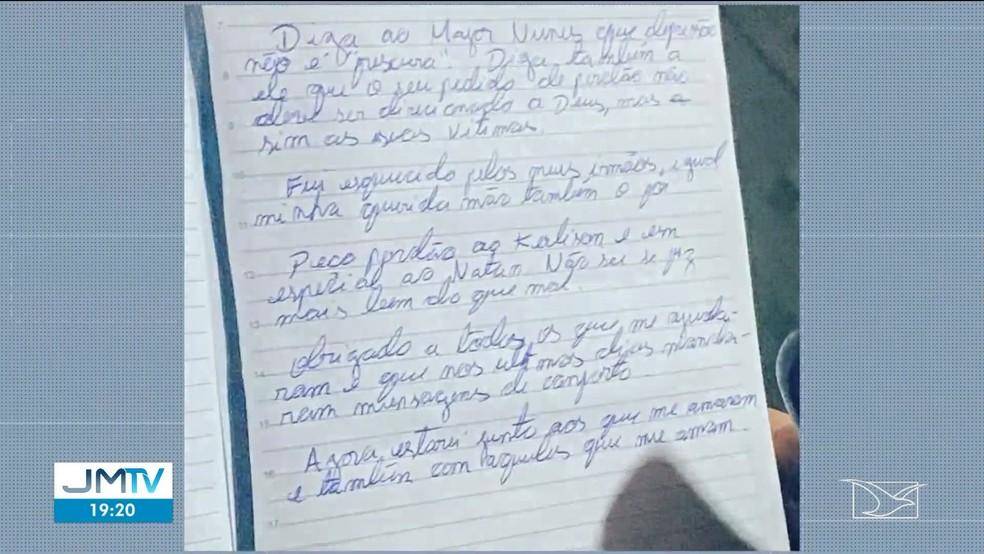 Diga ao Major Nunes que depressão
não é "frescura". Diga também a
ele que o seu pedido de perdão não
deve ser direcionado a Deus, mas a
sim as suas vitimas.
Fui esquecido pelos meus irmãos, igual
minha querida mãe também o foi
Peço perdão ao Kalison e em
especial ao Natan Não sei se fiz
mais bem do que mal.
Obrigado a todos os que me ajuda-
ram e que nos ultimos dias manda-
ram mensagens de conforto
Agora, estarei junto aos que me amaram
e também com aqueles que me amam.
JMTV
19:20